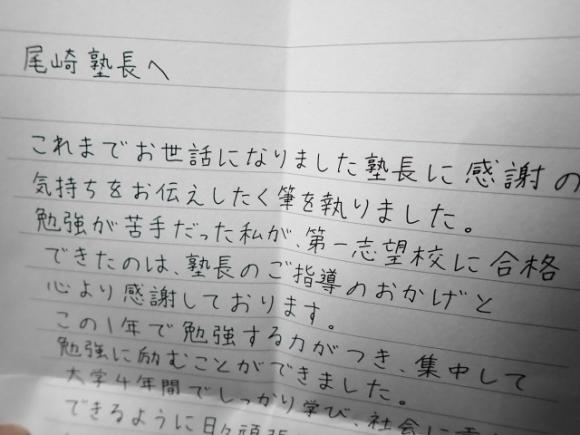 尾崎塾長へ
これまでお世話になりました塾長に感謝の
気持ちをお伝えしたく筆を執りました。
勉強が苦手だった私が、第一志望校に合格
できたのは、塾長のご指導のおかげと
心より感謝しております。
この1年で勉強する力がつき、集中して
勉強に励むことができました。
大学4年間でしっかり学び、社会に
できるように日々頑張